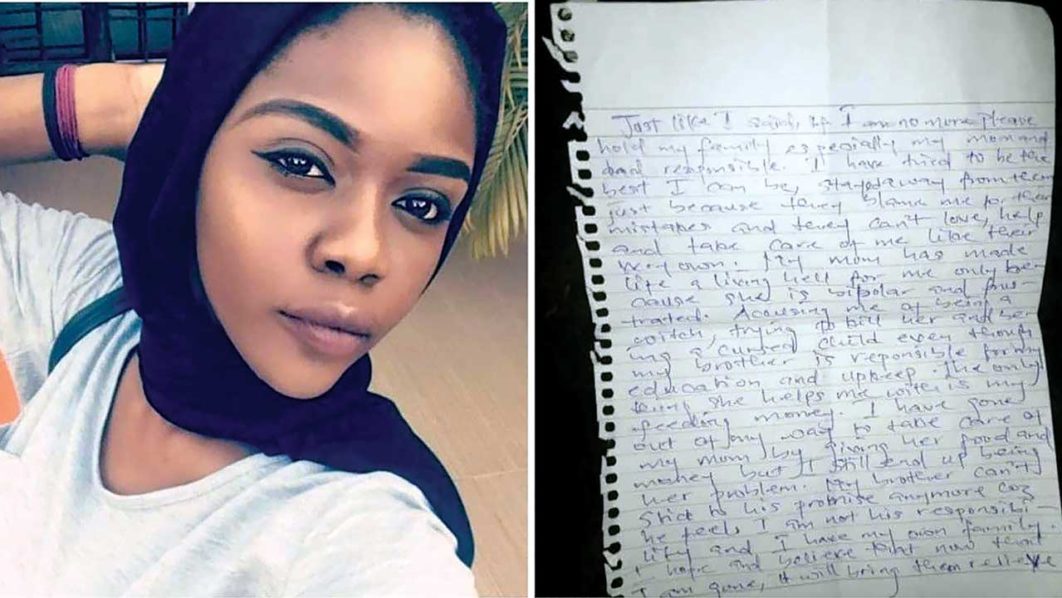 Just like I said, if I am no more please
hold my family especially my mom and
dad responsible. I have tried to be the
best I can be, stayed away from them
just because they blame me for their
mistakes and they can't love, help
and take care of me like their
very own. My mom has made
life a living hell for me only be-
cause she is bipolar and frus-
trated. Acussing me of being a
witch, trying to kill her and be-
ing a cursed child even though
my brother is reponsible for my
education and upkeep. The only
thing she helps me with is my
feeding money. I have gone
out of my way to take care of
my mom by giving her food and
money but I still end up being
her problem. My brother can't
stick to his promise anymore coz
he feels I am not his responsibi-
lity and I have my own family.
I hope and believe that now that
I am gone, it will bring them relieve